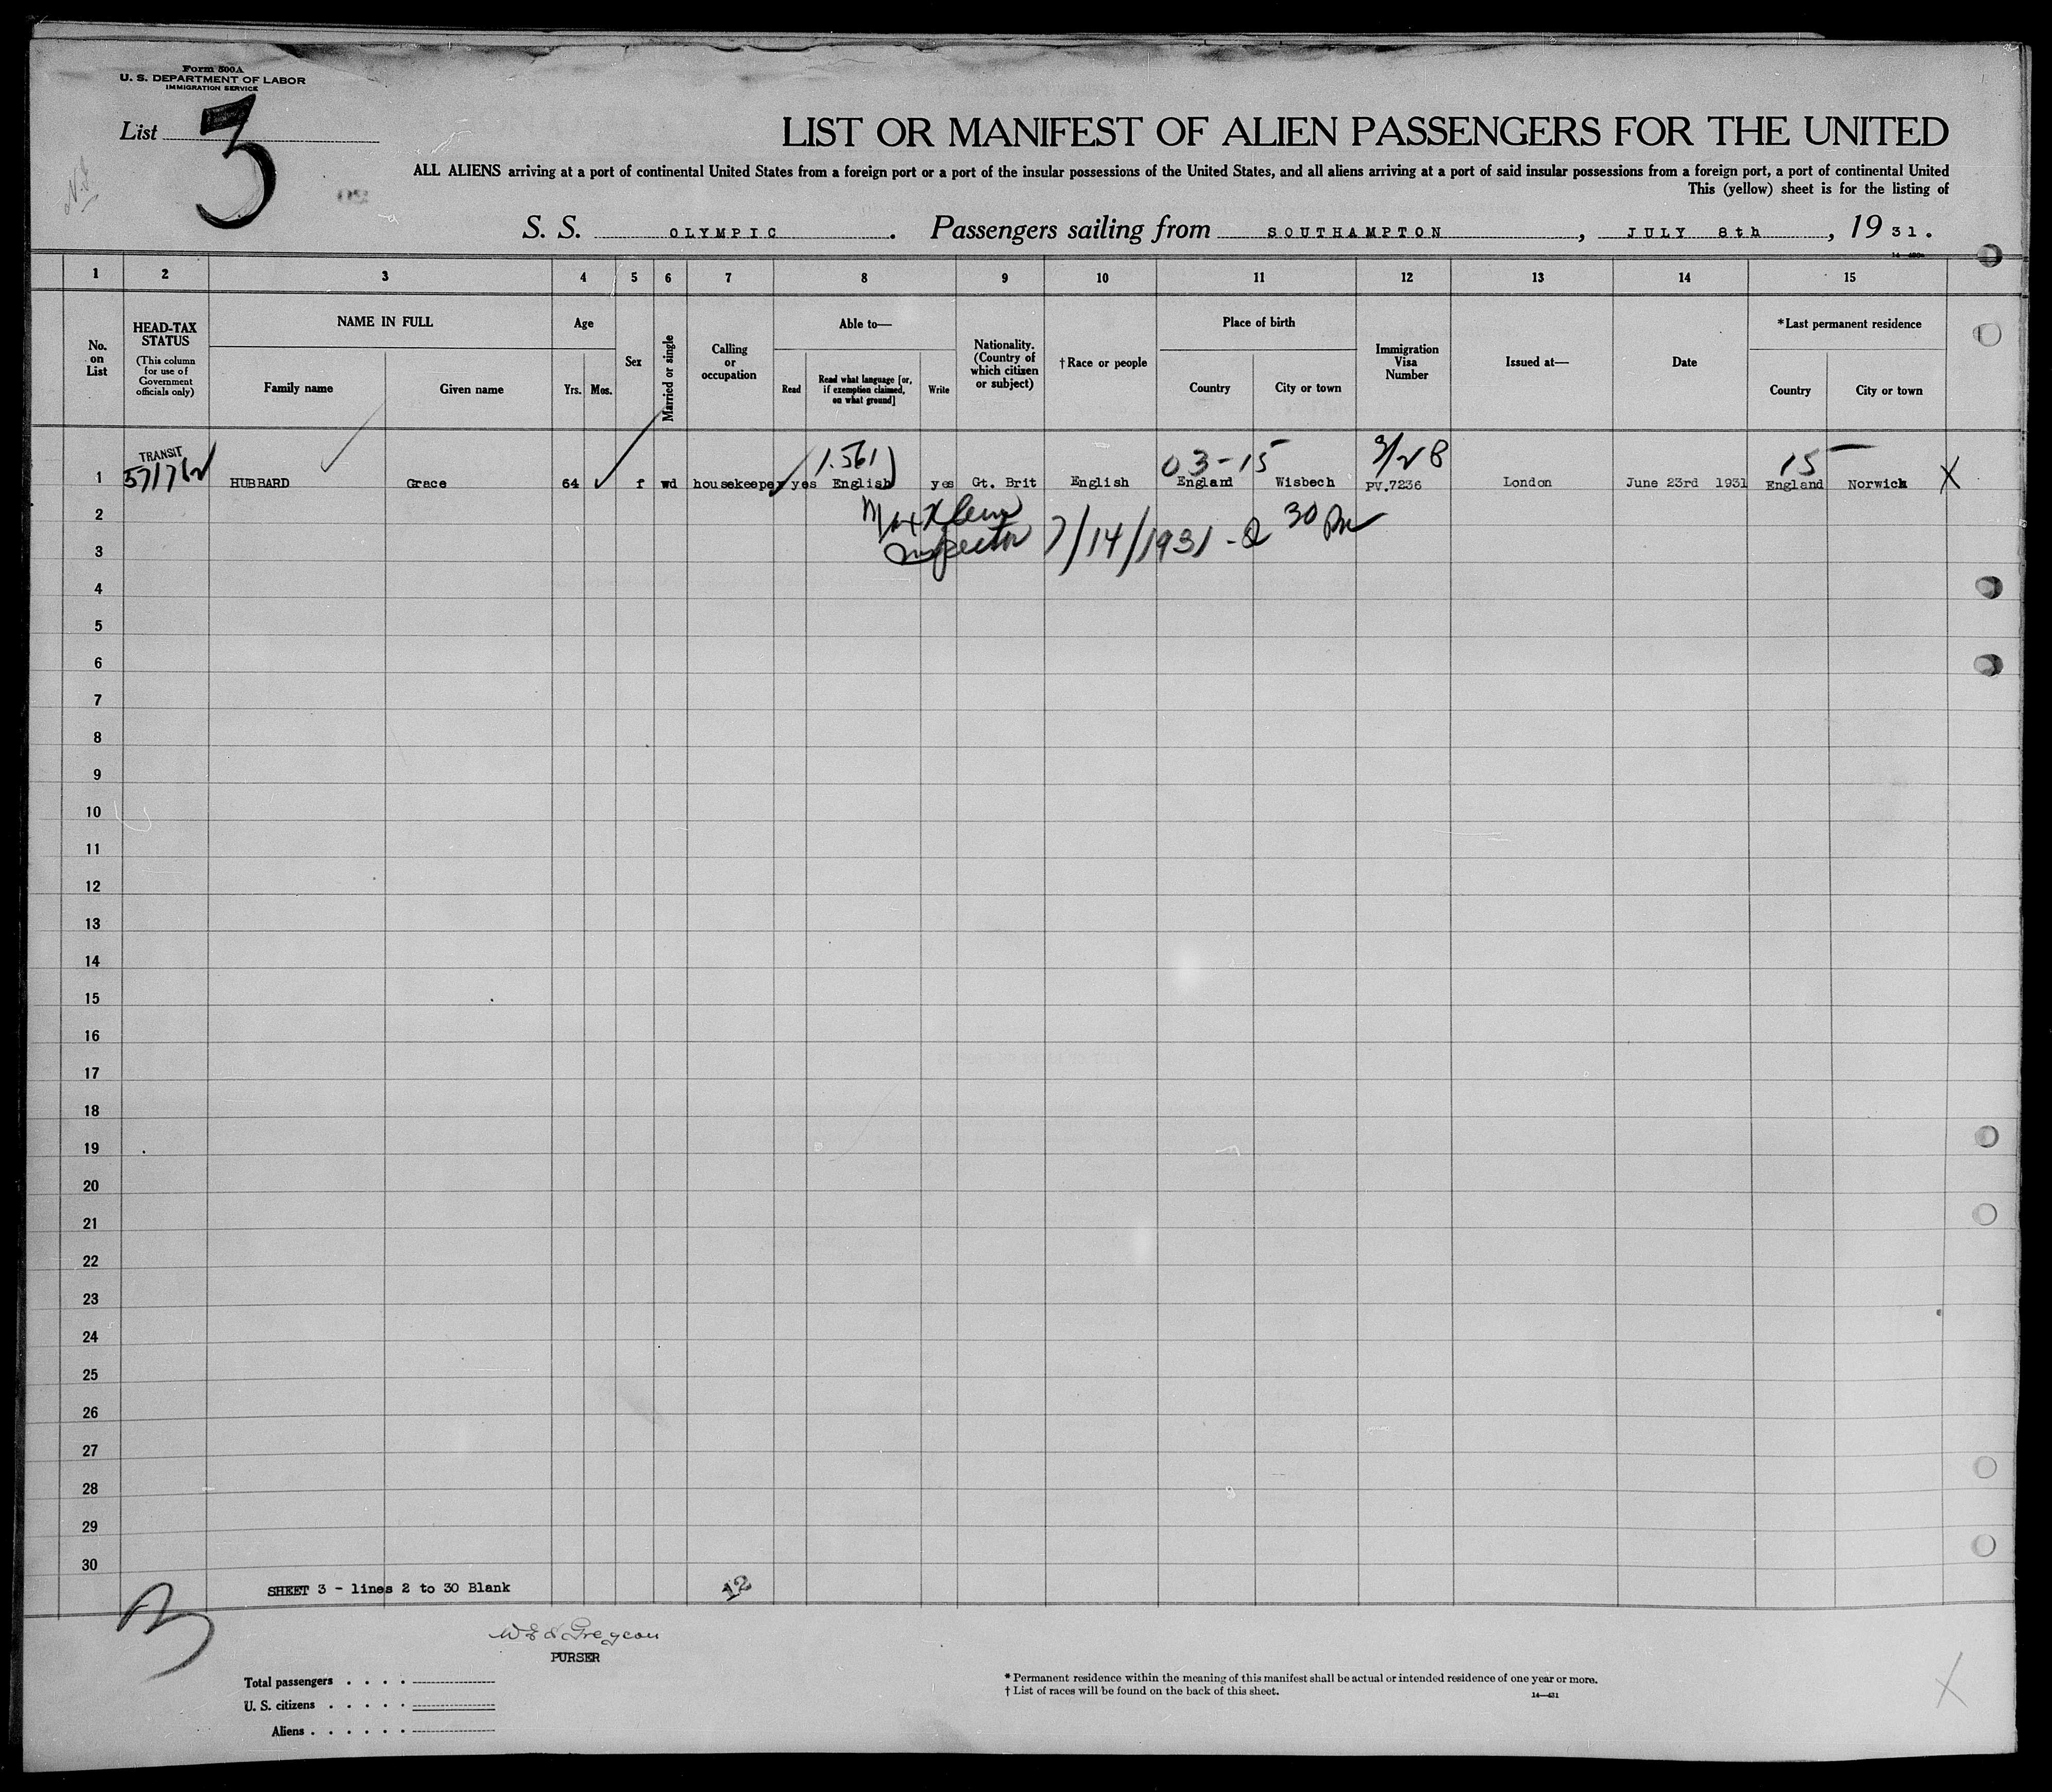 Form 500A
U. S. DEPARTMENT OF LABOR
IMMIGRATION SERVICE
List 3
LIST OR MANIFEST OF ALIEN PASSENGERS FOR THE UNITED
ALL ALIENS arriving at a port of continental United States from a foreign port or a port of the insular possessions of the United States, and all aliens arriving at a port of said insular possessions from a foreign port, a port of continental United
This (yellow) sheet is for the listing of
S. S. OLYMPIC. Passengers sailing from SOUTHAMPTON, JULY 8th, 1931.
1 2 3 4 5 6 7 8 9 10 11 12 13 14 15
No. on List
HEAD-TAX STATUS
(This column for use of Government officials only)
NAME IN FULL
Family name
Given name
Age
Yrs.
Mos.
Sex
Married or single
Calling or occupation
Able to—
Read
Read what language [or, if exemption claimed, on what ground]
Write
Nationality. (Country of which citizen or subject)
†Race or people
Place of birth
Country
City or town
Immigration Visa Number
Issued at—
Date
*Last permanent residence
Country
City or town
TRANSIT
1.561
03-15
15
1 HUBBARD Grace 64 f wd housekeeper yes English yes Gt. Brit English England Wisbech PV.7236 London June 23rd 1931 England Norwich X
2
Inspector 7/14/1931
3
4
5
6
7
8
9
10
11
12
13
14
15
16
17
18
19
20
21
22
23
24
25
26
27
28
29
30
SHEET 3 - lines 2 to 30 Blank
12
PURSER
Total passengers
U. S. citizens
Aliens
* Permanent residence within the meaning of this manifest shall be actual or intended residence of one year or more.
† List of races will be found on the back of this sheet.
14—431